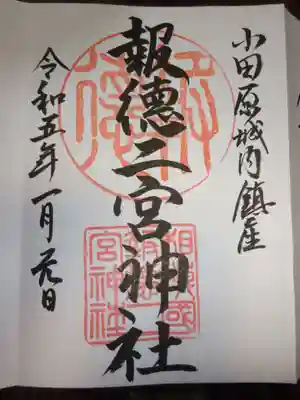 小田原城内鎮座
報徳二宮神社
令和五年一月元日
相模國
報徳二
宮神社